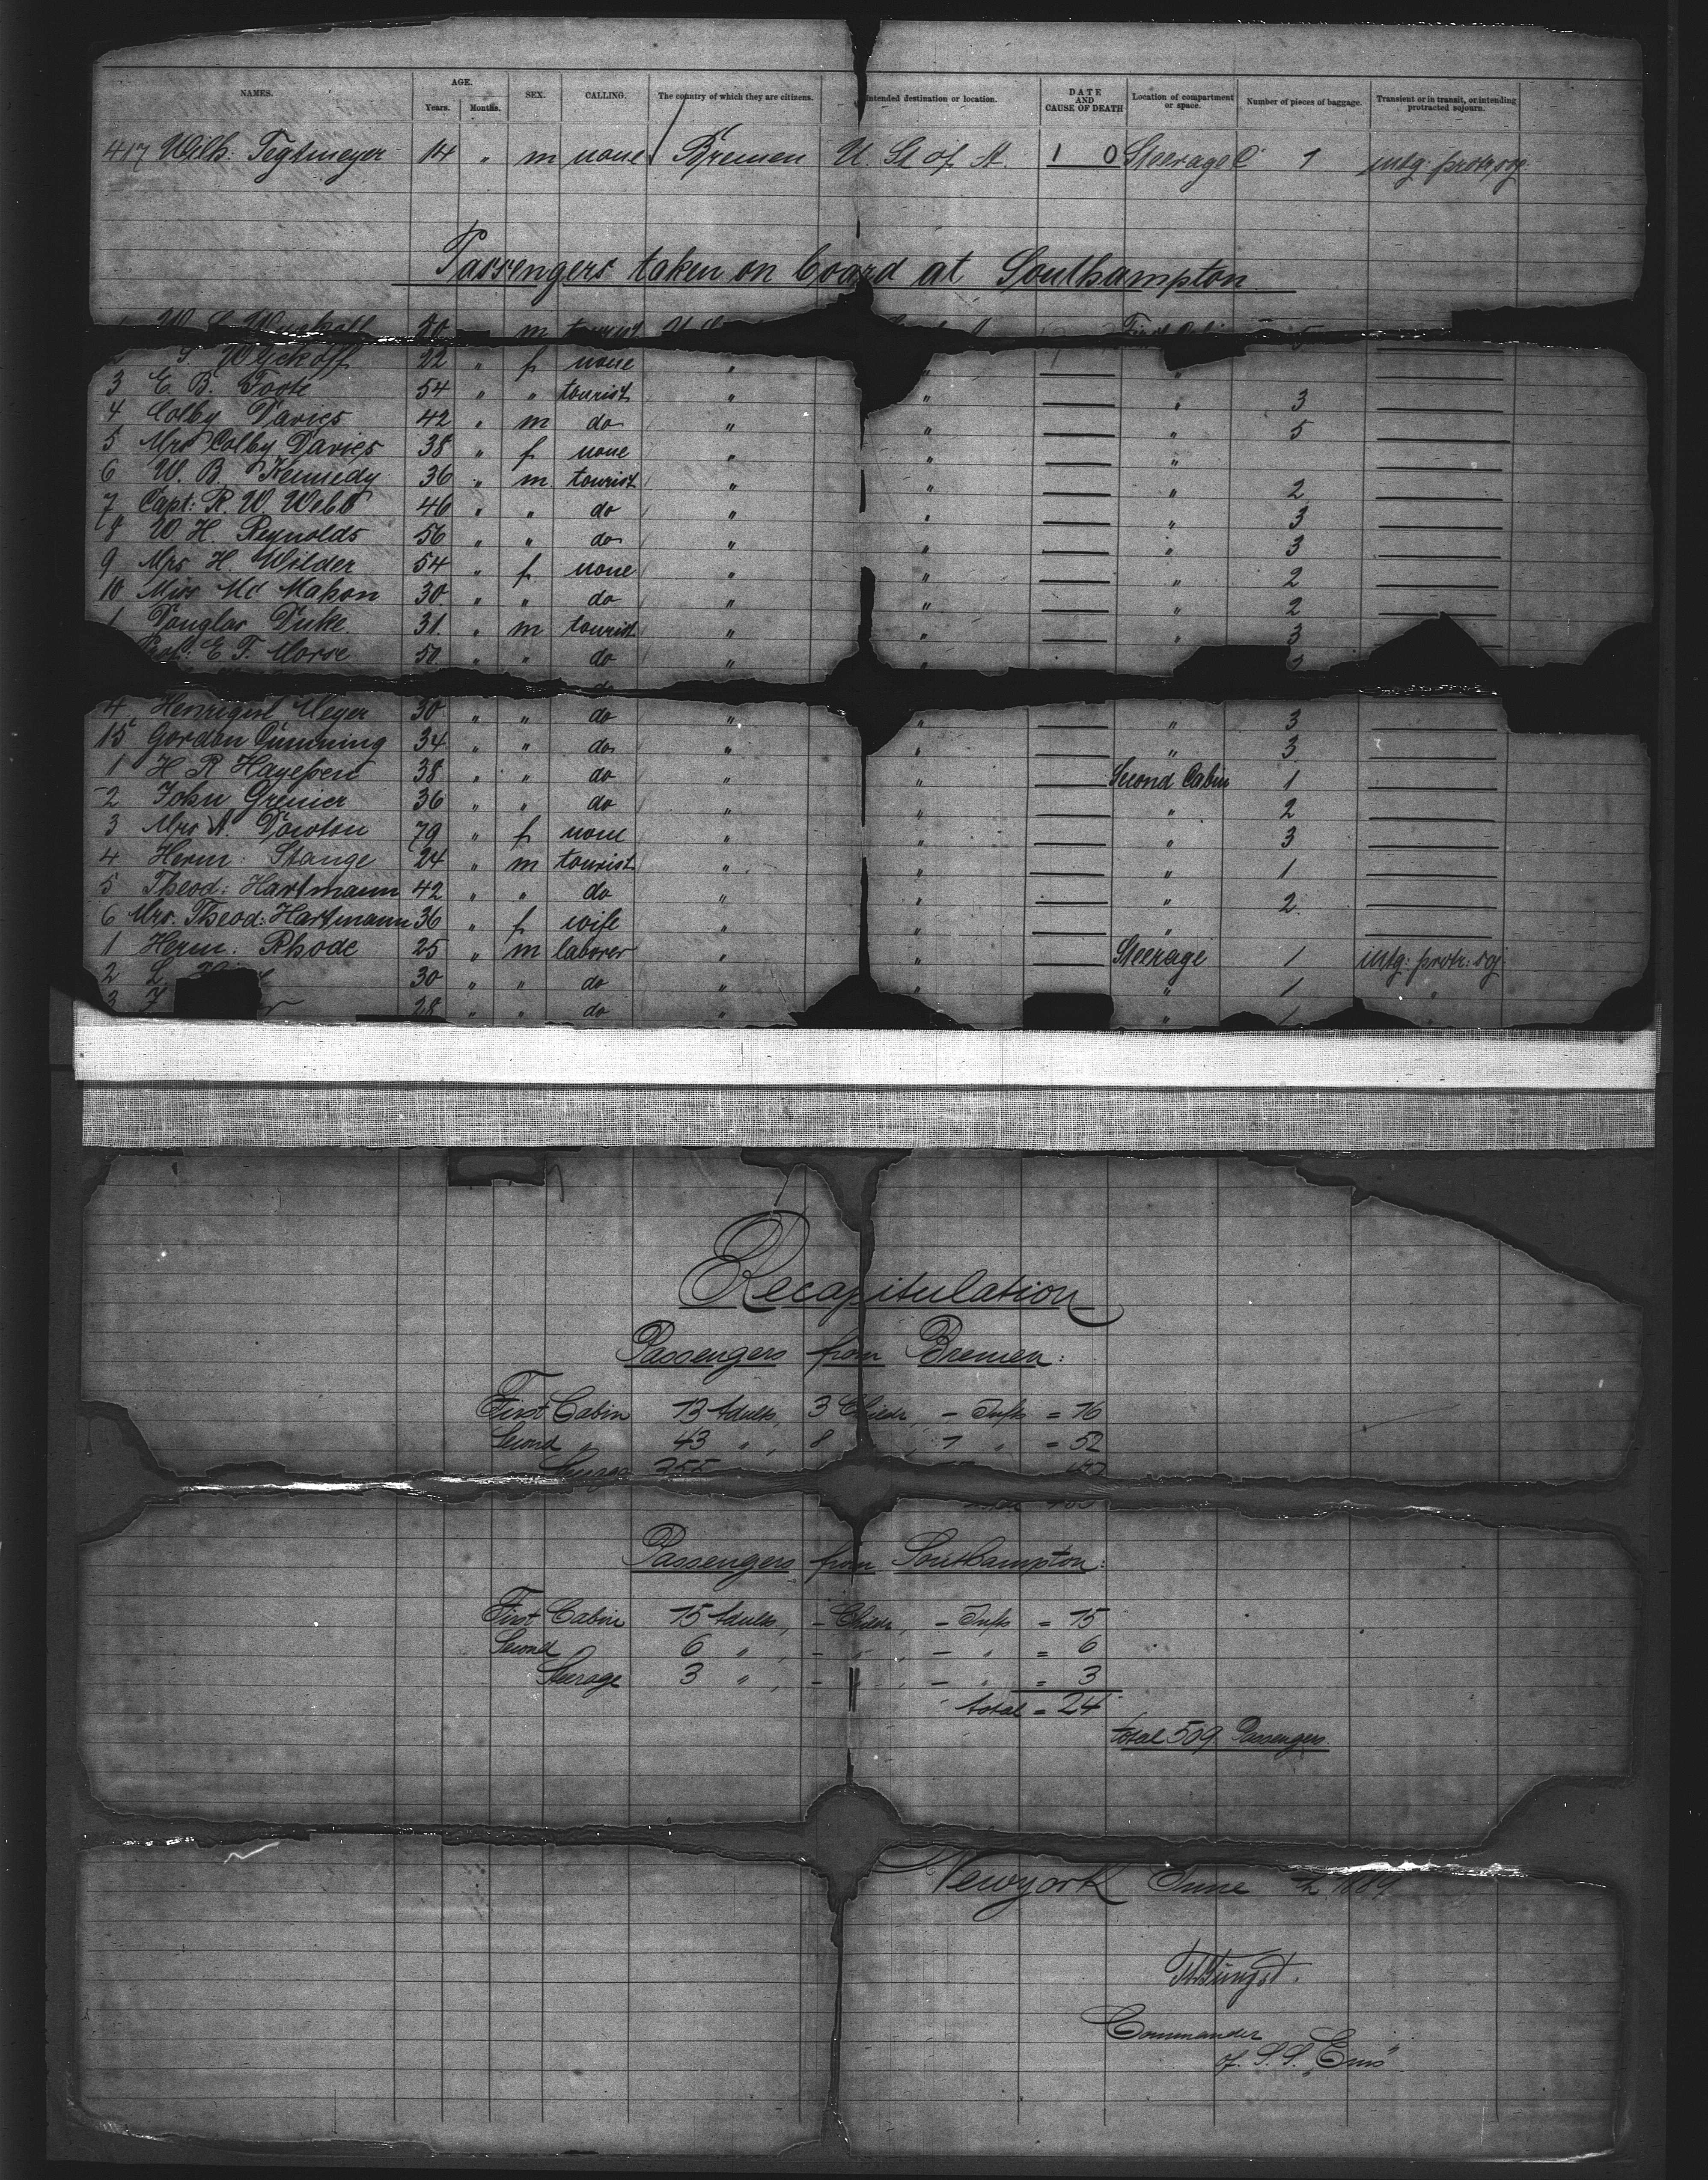 NAMES. AGE. Years. Months. SEX. CALLING. The country of which they are citizens. Intended destination or location. DATE AND CAUSE OF DEATH Location of compartment or space. Number of pieces of baggage. Transient or in transit, or intending protracted sojourn.
417 Wilh: Tegtmeyer 14 " m none Bremen U. St of A. 1 0 Steerage C 1 intg: protr: soj:
Passengers taken on board at Southampton
Wyckoff m tourist 5
2 S. Wyckoff 22 " f none " " "
3 E. B. Foote 54 " " tourist " " " 3
4 Colby Davies 42 " m do " " " 5
5 Mrs Colby Davies 38 " f none " " "
6 W. B. Kennedy 36 " m tourist " " " 2
7 Capt: R. W. Webb 46 " " do " " " 3
8 W. H. Reynolds 56 " " do " " " 3
9 Mrs H. Wilder 54 " f none " " " 2
10 Miss Mc Mahon 30 " " do " " " 2
1 Douglas Duke 31 " m tourist " " " 3
Prof: E. F. Morse 50 " " do " "
do
4 Meyer 30 " " do " " " 3
15 Gordon Cumming 34 " " do " " " 3
1 H R 38 " " do " " Second Cabin 1
2 John Grenier 36 " " do " " " 2
3 Mrs A. Dowton 79 " f none " " " 3
4 Herm: Stange 24 " m tourist " " " 1
5 Theod: Hartmann 42 " " do " " " 2
6 Mrs. Theod: Hartmann 36 " f wife " " "
1 Herm: Rhode 25 " m laborer " " Steerage 1 intg: protr: soj
2 L. 30 " " do " " " 1 "
3 28 " " do " " 1
Recapitulation
Passengers from Bremen:
First Cabin 13 Adults, 3 Childr, – Infts = 16
Second " 43 " , 8 , 1 " = 52
Steerage 355
Passengers from Southampton:
First Cabin 15 Adults, – Childr, – Infts = 15
Second 6 " , – " , – " = 6
Steerage 3 " , – " , – " = 3
total = 24
total 509 Passengers.
Newyork June 1889
Commander
of S. S. "Ems"